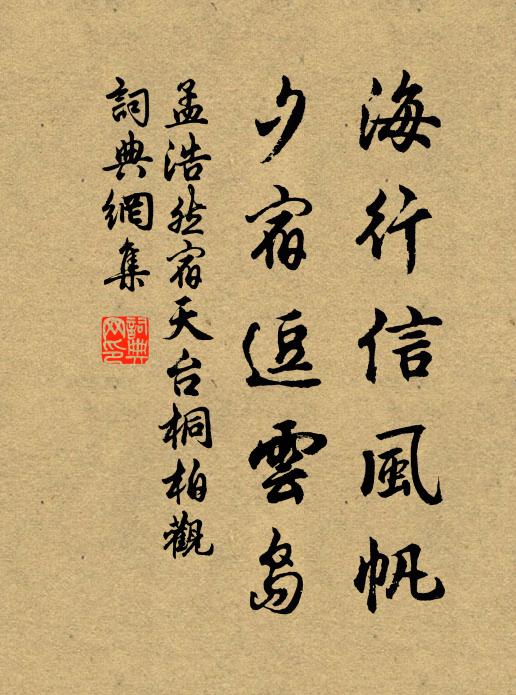 海行信風帆
夕宿逗雲島
孟浩然宿天台桐柏觀
詞典網集
詞典網印